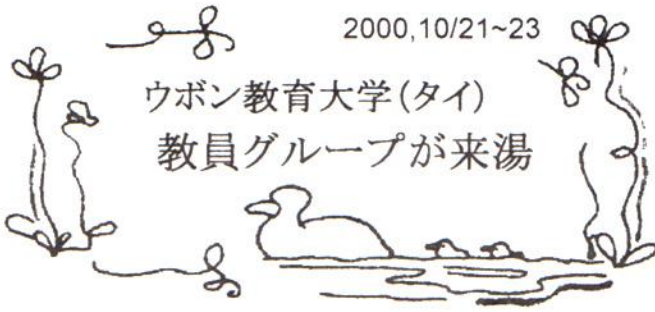 2000,10/21~23
ウボン教育大学(タイ)
教員グループが来湯